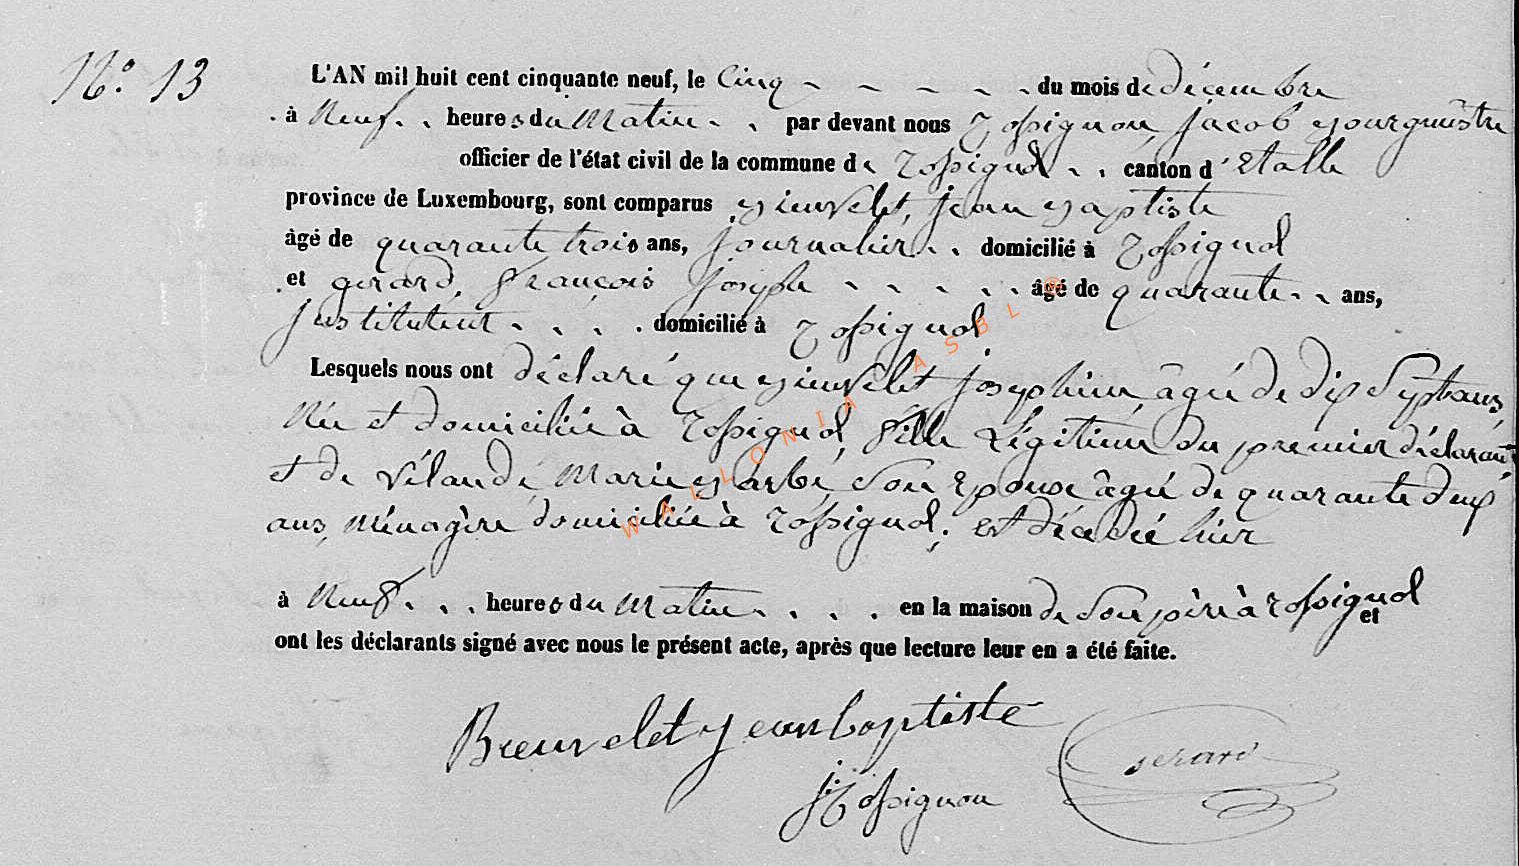 N.° 13
L'AN mil huit cent cinquante neuf, le Cinq du mois de décembre
à Neuf heures du Matin par devant nous Rossignon, Jacob Bourgmestre
officier de l'état civil de la commune de Rossignol canton d'Etalle
province de Luxembourg, sont comparus Bieuvelet, Jean Baptiste
âgé de quarante trois ans, Journalier domicilié à Rossignol
et gerard, François Joseph âgé de quarante ans,
Instituteur domicilié à Rossignol
Lesquels nous ont déclaré que Bieuvelet Josephine, âgée de dix Sept ans,
Née et domiciliée à Rossignol, fille Légitime du premier déclarant,
et de Marie Barbe, Son Epouse âgée de quarante deux
ans, Ménagère domiciliée à Rossignol, est décédée hier
à Neuf heures du Matin en la maison de Son père à Rossignol et
ont les déclarants signé avec nous le présent acte, après que lecture leur en a été faite.
Bieuvelet Jean baptiste
J Rossignon
Gerard
WALLONIA ASBL ©